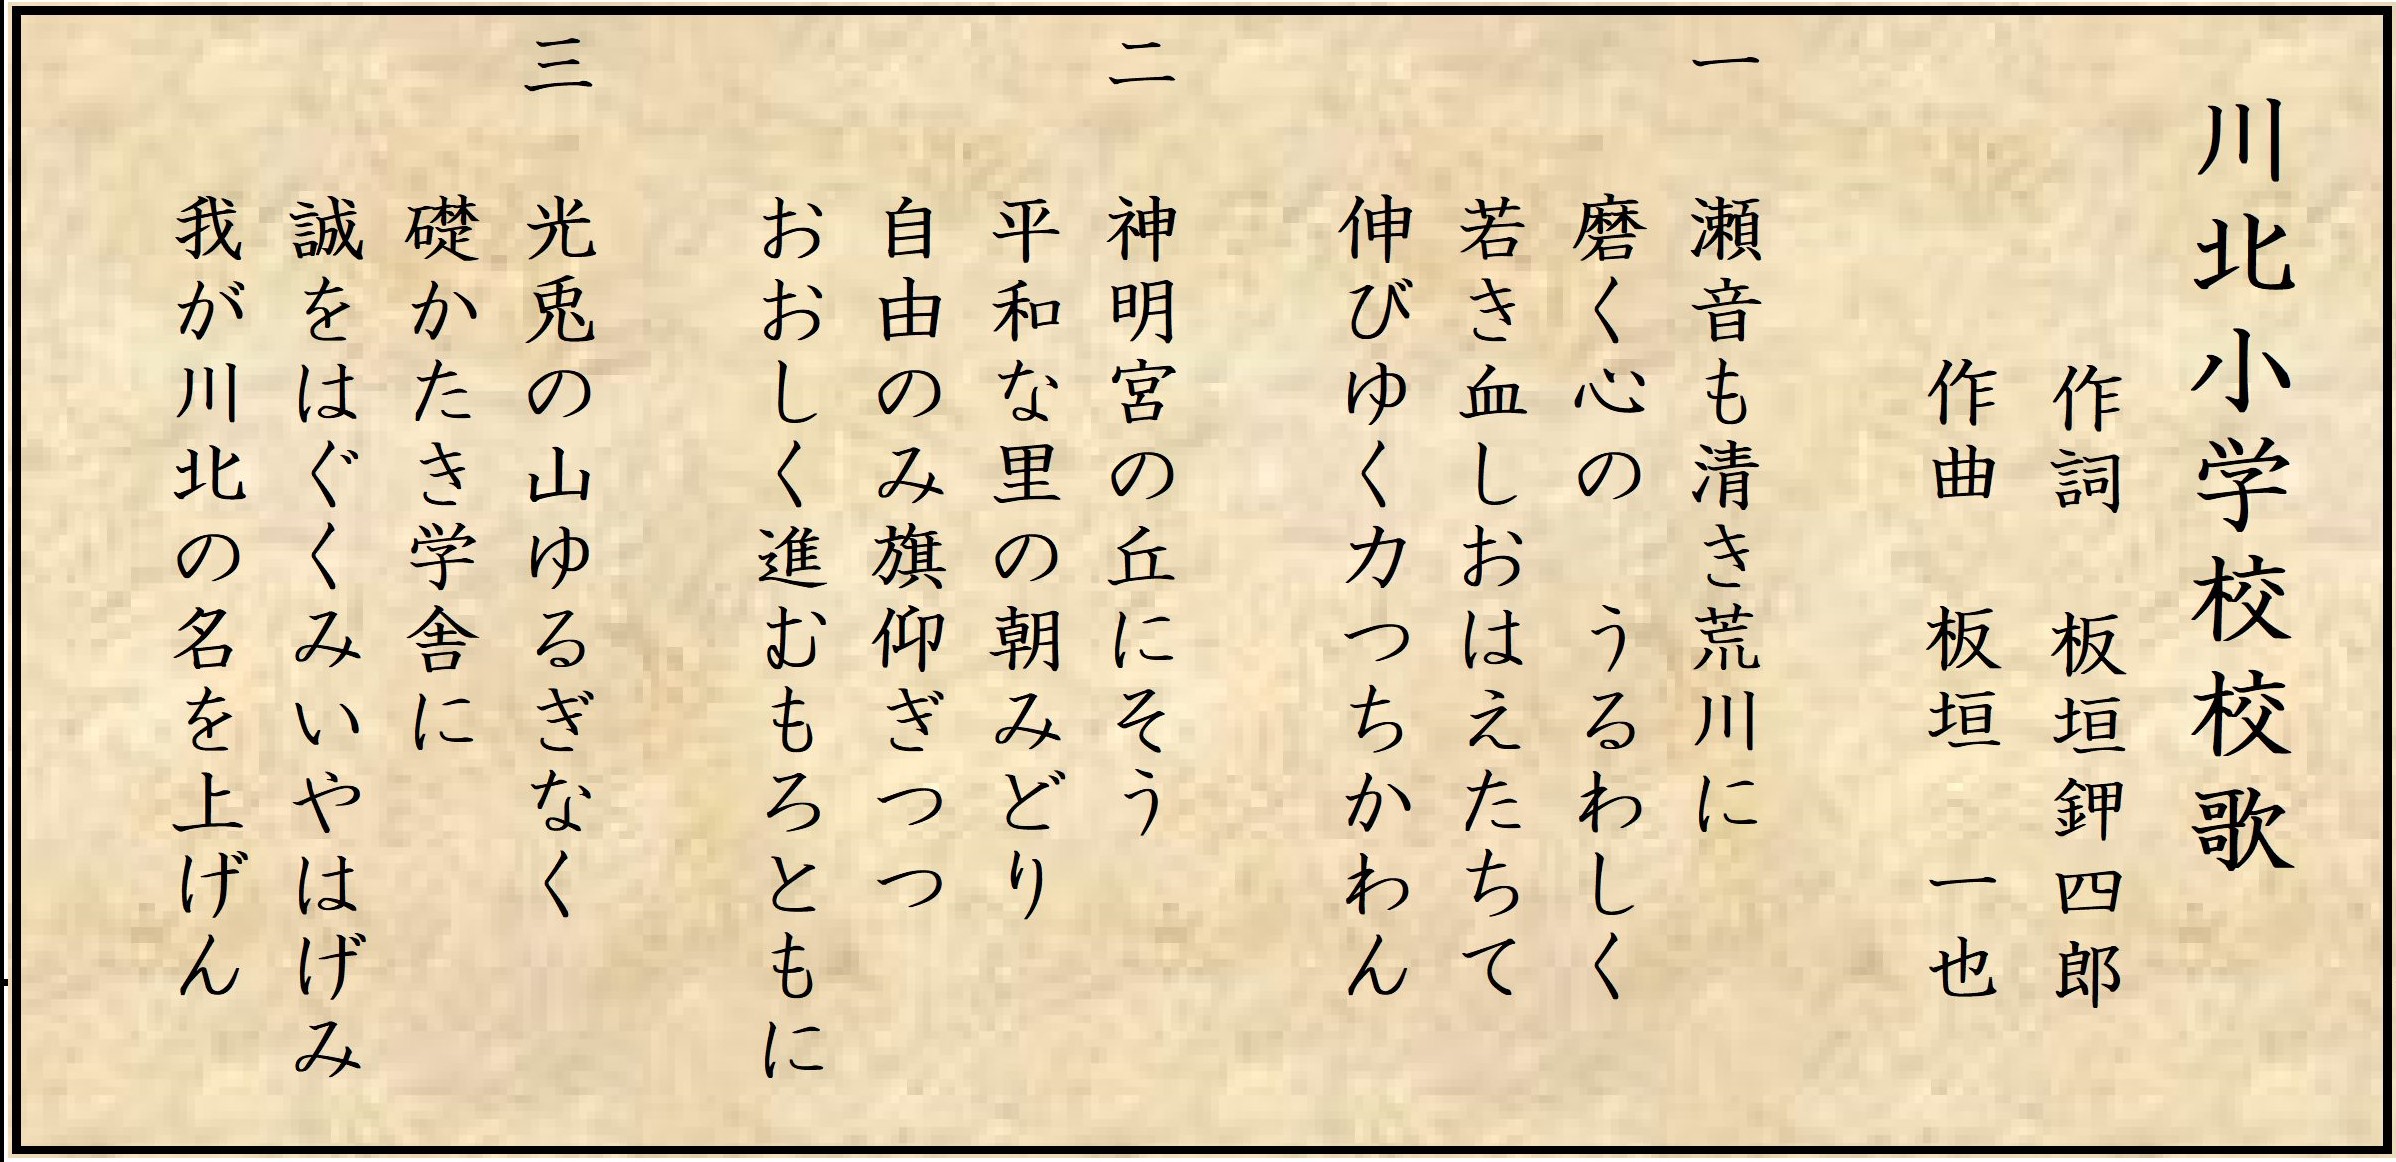 川北小学校校歌
作詞　板垣鉀四郎
作曲　板垣　一也
一
瀬音も清き荒川に
磨く心の　うるわしく
若き血しおはえたちて
伸びゆく力つちかわん
二
神明宮の丘にそう
平和な里の朝みどり
自由のみ旗仰ぎつつ
おおしく進むもろともに
三
光兎の山ゆるぎなく
礎かたき学舎に
誠をはぐくみいやはげみ
我が川北の名を上げん